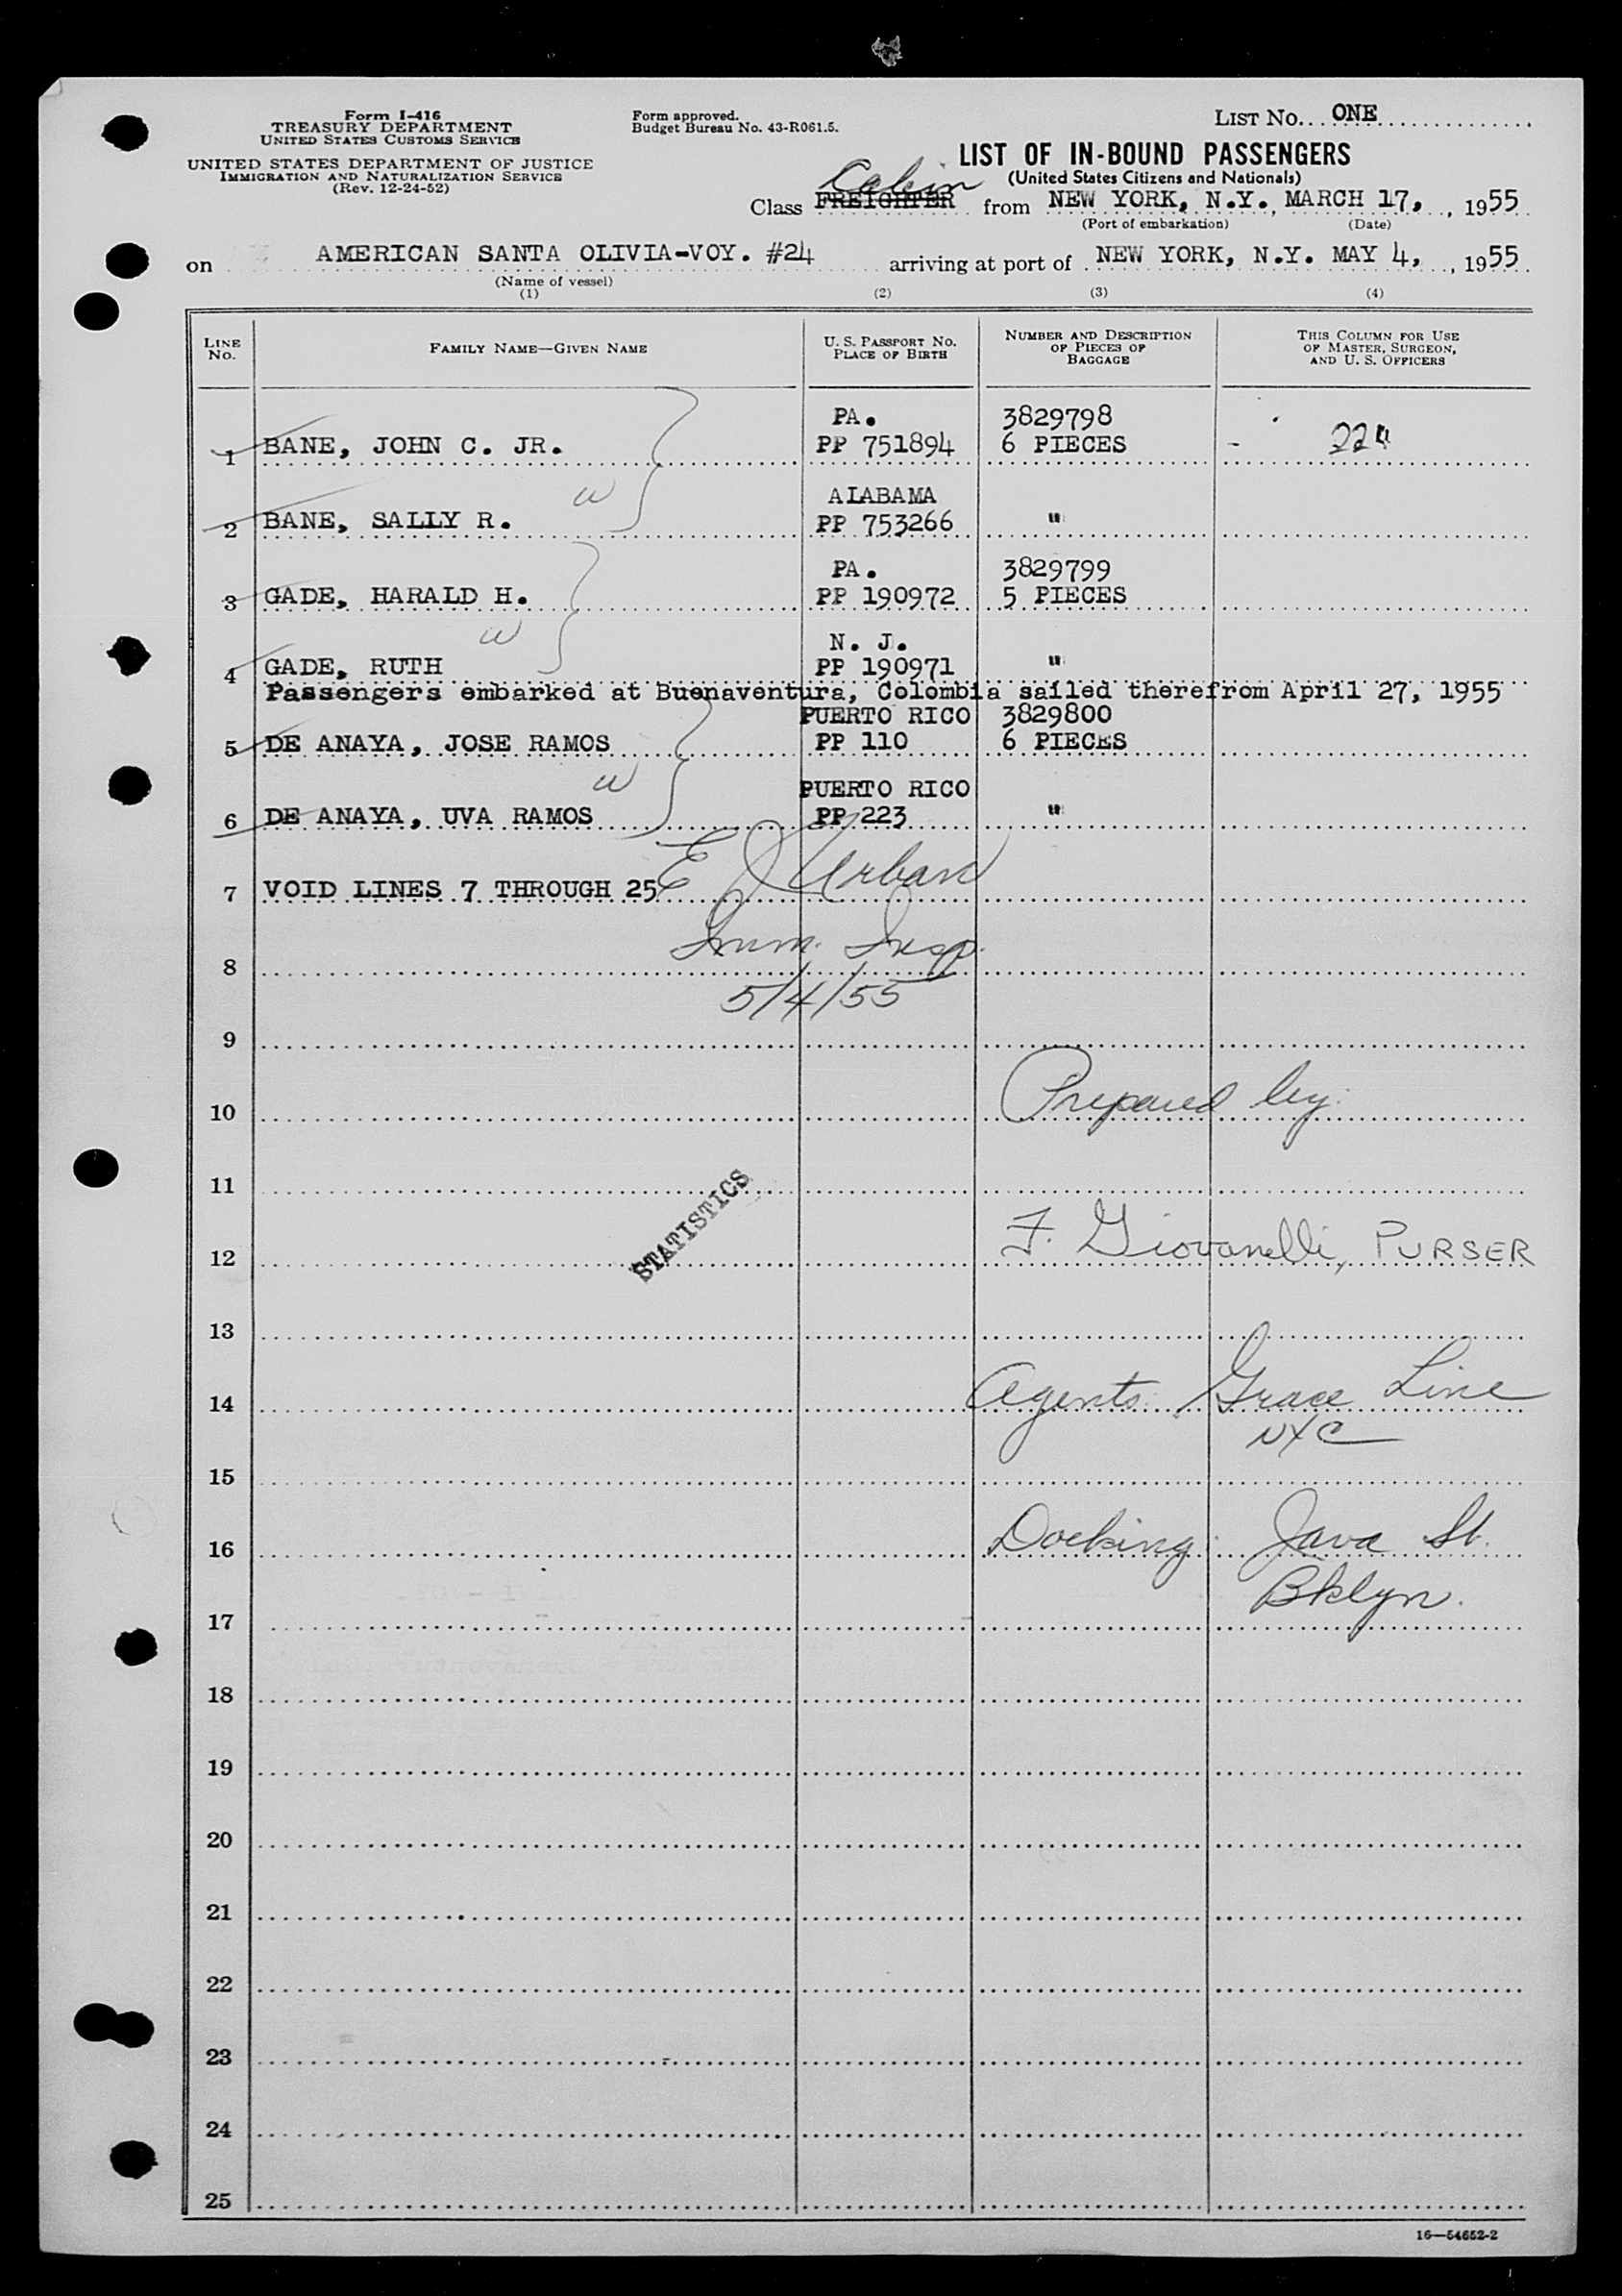 Form I-416
TREASURY DEPARTMENT
UNITED STATES CUSTOMS SERVICE
UNITED STATES DEPARTMENT OF JUSTICE
IMMIGRATION AND NATURALIZATION SERVICE
(Rev. 12-24-52)
Form approved.
Budget Bureau No. 43-R061.5.
LIST NO. ONE
LIST OF IN-BOUND PASSENGERS
(United States Citizens and Nationals)
Cabin
Class FREIGHTER from NEW YORK, N.Y., MARCH 17, , 1955
(Port of embarkation) (Date)
on AMERICAN SANTA OLIVIA-VOY. #24 arriving at port of NEW YORK, N.Y. MAY 4, , 1955
(Name of vessel)
(1) (2) (3) (4)
LINE NO. FAMILY NAME—GIVEN NAME U. S. PASSPORT NO. PLACE OF BIRTH NUMBER AND DESCRIPTION OF PIECES OF BAGGAGE THIS COLUMN FOR USE OF MASTER, SURGEON, AND U. S. OFFICERS
PA. 3829798
1 BANE, JOHN C. JR. PP 751894 6 PIECES -
W ALABAMA
2 BANE, SALLY R. PP 753266 "
PA. 3829799
3 GADE, HARALD H. PP 190972 5 PIECES
W N. J.
4 GADE, RUTH PP 190971 "
Passengers embarked at Buenaventura, Colombia sailed therefrom April 27, 1955
PUERTO RICO 3829800
5 DE ANAYA, JOSE RAMOS PP 110 6 PIECES
W PUERTO RICO
6 DE ANAYA, UVA RAMOS PP 223 "
7 VOID LINES 7 THROUGH 25 E J Urban
Imm. Insp.
8
5/4/55
9
10 Prepared by:
11
STATISTICS
12 F. Giovanelli, PURSER
13
14 Agents: Grace Line
NYC
15
16 Docking: Java St.
Bklyn.
17
18
19
20
21
22
23
24
25
16—54652-2